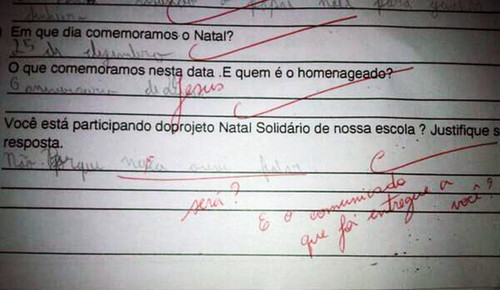 Em que dia comemoramos o Natal?
25 de dezembro
O que comemoramos nesta data .E quem é o homenageado?
Jesus
Você está participando doprojeto Natal Solidário de nossa escola ? Justifique s
resposta.
Não. Porque não ouvi falar
será?
E o comunicado
que foi entregue a
você?